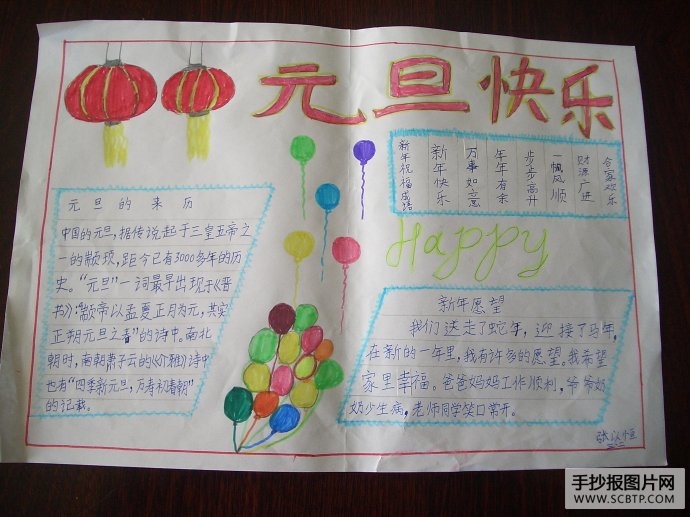 元旦快乐
新年祝福成语
新年快乐
万事如意
年年有余
步步高升
一帆风顺
财源广进
合家欢乐
元旦的来历
中国的元旦，据传说起于三皇五帝之
一的颛顼，距今已有3000多年的历
史。“元旦”一词最早出现于《晋
书》：“颛帝以孟夏正月为元，其实
正朔元旦之春”的诗中。南北
朝时，南朝萧子云的《介雅》诗中
也有“四季新元旦，万寿初春朝”
的记载。
Happy
新年愿望
我们送走了蛇年，迎接了马年，
在新的一年里，我有许多的愿望。我希望
家里幸福。爸爸妈妈工作顺利，爷爷奶
奶少生病，老师同学笑口常开。
张以恒
手抄报图片网
WWW.SCBTP.COM